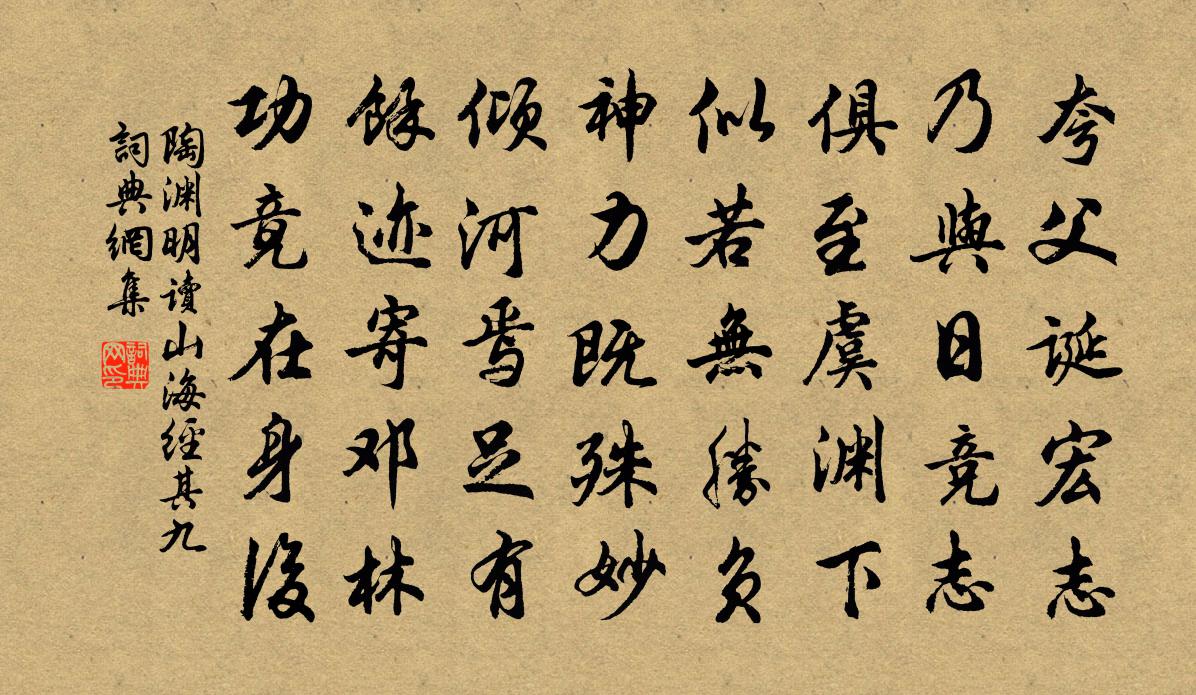 夸父诞宏志
乃與日竞志
俱至虞渊下
似若無勝负
神力既殊妙
倾河焉足有
餘迹寄邓林
功竟在身後
陶渊明读山海經其九
詞典網集
詞典网印